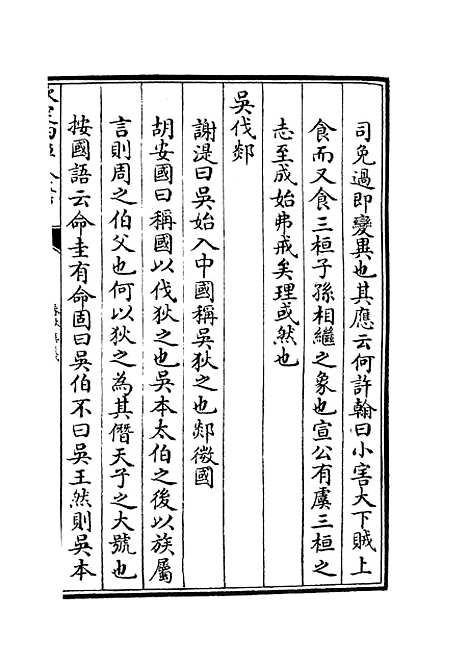 司免過即變異也其應云何許翰曰小害大下賊上
食而又食三桓子孫相繼之象也宣公有虞三桓之
志至成始弗戒矣理或然也
吳伐郯
謝湜曰吳始入中國稱吳狄之也郯微國
胡安國曰稱國以伐狄之也吳本太伯之後以族屬
言則周之伯父也何以狄之為其僭天子之大號也
按國語云命圭有命固曰吳伯不曰吳王然則吳本